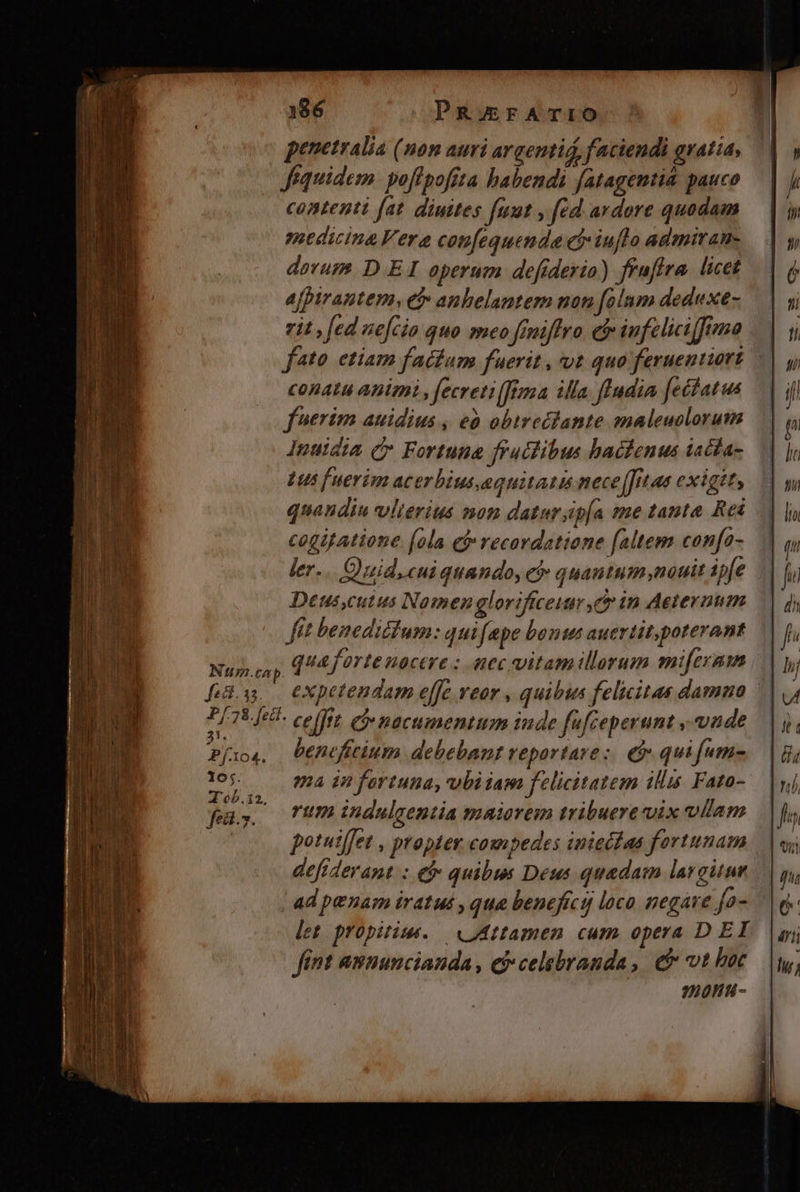 186 PRÆFATIO
penetralia (non auri argentiq́, faciendi gratia,
ſiquidem poſtpoſita habendi ſatagentiâ pauco
contenti ſat diuites ſunt, ſed ardore quodam
medicinæ Veræ conſequendæ & iuſto admiran-
dorum DEI operum deſiderio) fruſtra licet
aſpirantem, & anhelantem non ſolum deduxe-
rit, ſed neſcio quo meo ſiniſtro & infeliciſſimo
fato etiam factum fuerit, vt quo feruentiori
conatu animi, ſecretiſſima illa ſtudia ſectatus
fuerim auidius, eò obtrectante maleuolorum
Inuidia & Fortunæ fructibus hactenus iacta-
tus fuerim acerbius, æquitatis neceſſitas exigit,
quandiu vlterius non datur, ipſa me tantæ Rei
cogitatione ſola & recordatione ſaltem conſo-
ler. Quid, cui quando, & quantum, nouit ipſe
Deus, cuius Nomen glorificetur, & in Aeternum
ſit benedictum: qui ſæpe bonus auertit, poterant
Num. cap. quæ forte nocere: nec vitam illorum miſeram
ſect. 33. expetendam eſſe reor, quibus felicitas damno
Pſ. 78. ſect. ceſſit & nocumentum inde ſuſceperunt, vnde
31.
Pſ. 104. beneficium debebant reportare: & qui ſum-
105. ma in fortuna, vbi iam felicitatem illis Fato-
Tob. 12.
ſect. 7. rum indulgentia maiorem tribuere vix vllam
potuiſſet, propter compedes iniectas fortunam
deſiderant: & quibus Deus quædam largitur
ad pœnam iratus, quæ beneficij loco negare ſo-
let propitius. Attamen cum opera DEI
ſint annuncianda, & celebranda, & vt hoc
monu-